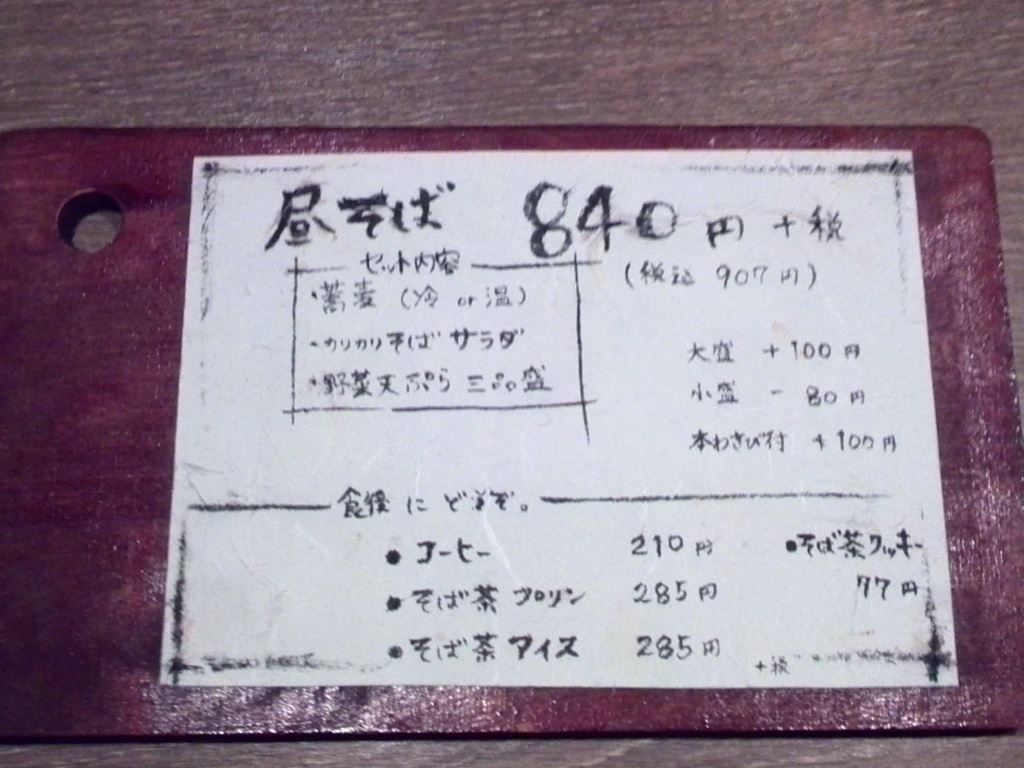 昼そば 840円 +税
(税込 907円)
セット内容
・蕎麦 (冷 or 温)
・カリカリそばサラダ
・野菜天ぷら三品盛
大盛 +100円
小盛 - 80円
本わさび付 +100円
食後にどうぞ。
● コーヒー 210円
● そば茶プリン 285円
● そば茶アイス 285円
●そば茶クッキー
77円
+税